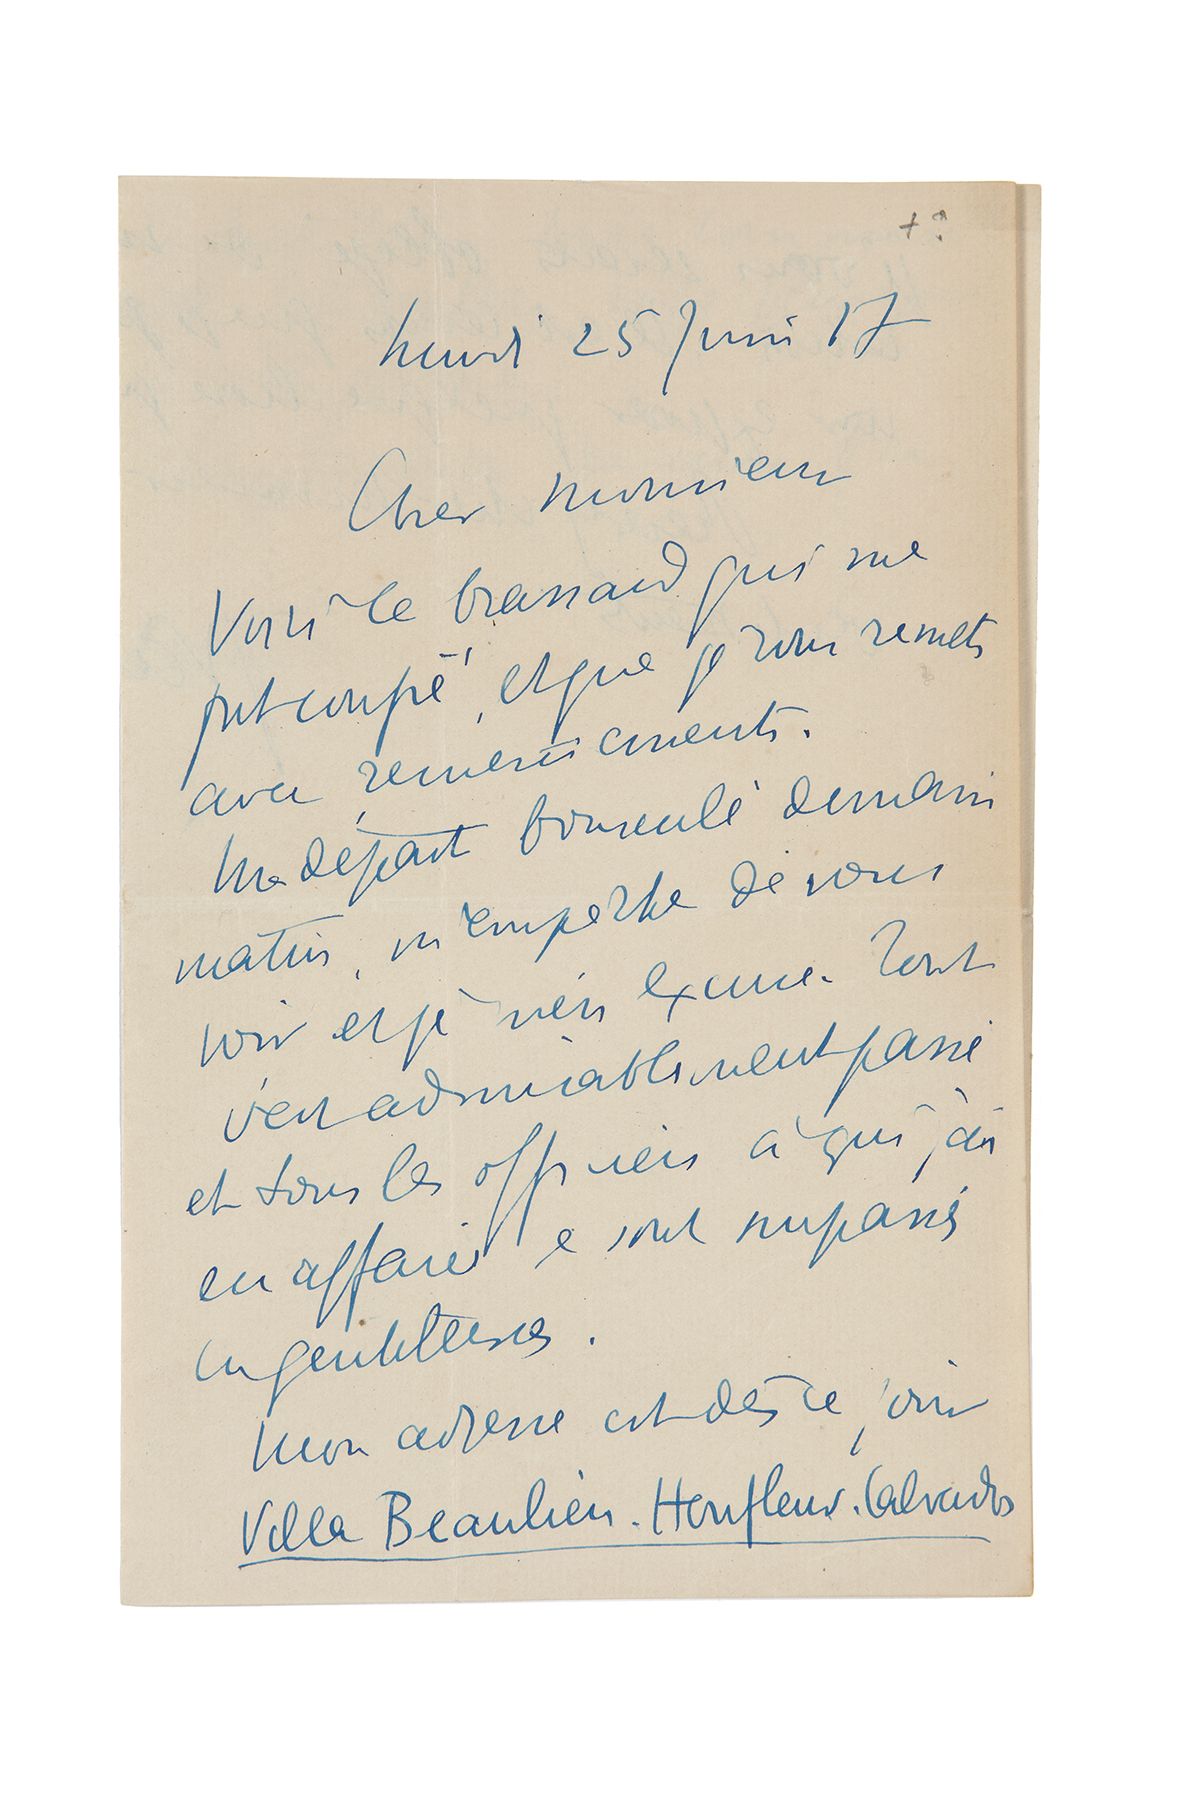 + ?
Lundi 25 Juin 17
Cher Monsieur
Voici le brassard qui me
fut confié, et que je vous remets
avec remerciements.
Mon départ bousculé demain
matin, m'empêche de vous
voir et je m'en excuse. Tout
s'est admirablement passé
et tous les officiers à qui j'ai
eu affaire se sont surpassés
en gentillesses.
Mon adresse est dès ce jour
Villa Beaulieu. Honfleur. Calvados